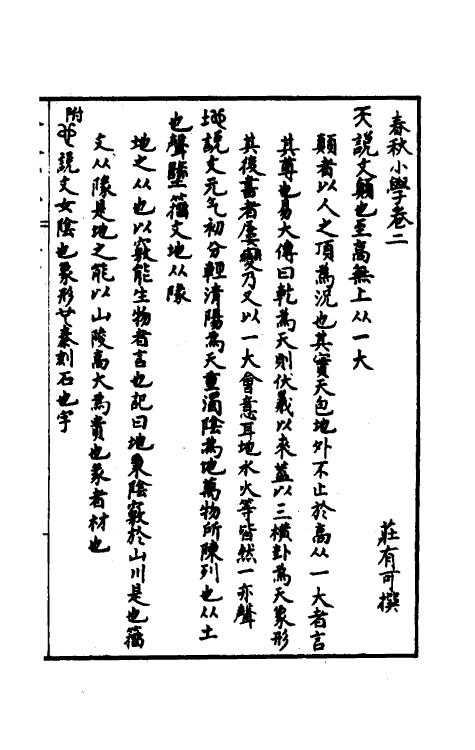 春秋小學卷二
莊有可撰
天說文顛也至高無上从一大
顛者以人之頂為況也其實天包地外不止於高从一大者言
其尊也易大傳曰乾為天則伏羲以來蓋以三橫卦為天象形
其後書者屢變乃又以一大會意耳地水火等皆然一亦聲
地說文元气初分輕清陽為天重濁陰為地萬物所陳列也从土
也聲墬籀文地从隊
地之从也以竅能生物者言也記曰地秉陰竅於山川是也籀
文从隊是地之能以山陵高大為貴也彖者材也
附也說文女陰也象形𠃟秦刻石也字